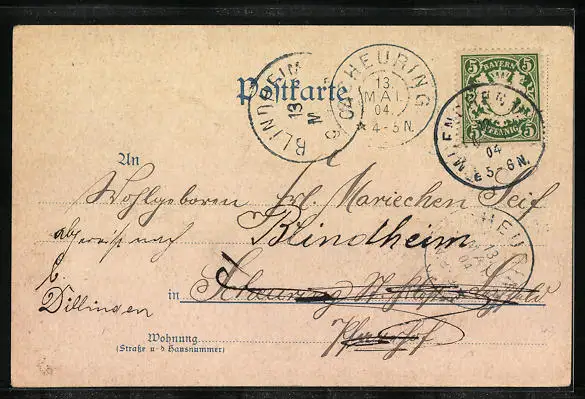 Postkarte
SCHEURING
13
MAI
04
4-5N.
BLINDHEIM
13
BAYERN
5 5
PFENNIG
04
5-6N.
An
Wohlgeboren Frl. Mariechen Seif
abgereist nach Blindheim
Dillingen
in Scheuring
Pfarrhof
SCHEURING
13
MAI
04
Wohnung
(Straße u. d. Hausnummer)